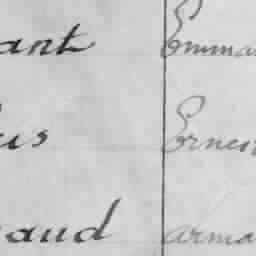 ant Emma
is Ernest
aud arma